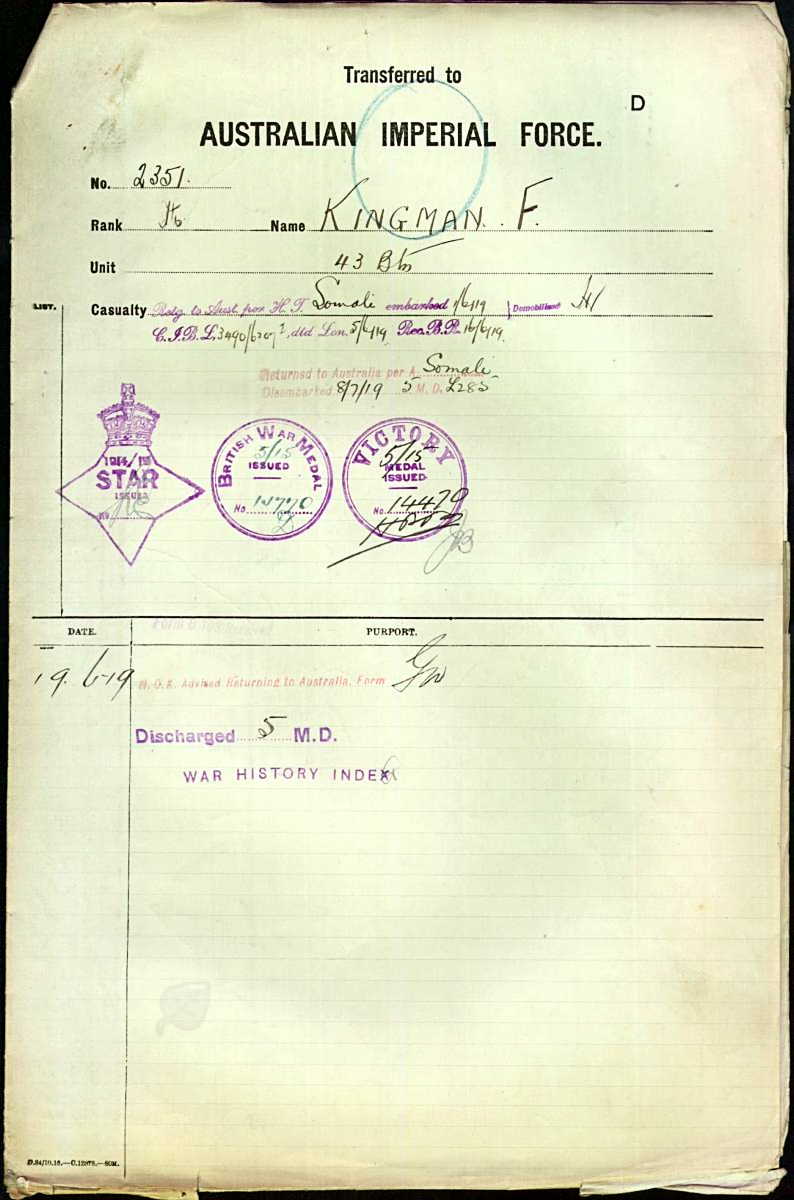 Transferred to
D
AUSTRALIAN IMPERIAL FORCE.
No. 2351.
Rank Pte Name KINGMAN. F.
Unit 43 Btn
LIST.
Casualty Retg. to Aust. per H. T. Somali embarked 1/6/19 Demobilised
C.I.B. L. dtd Lon. 5/6/19 Rec. B.R. 16/6/19.
Returned to Australia per A. Somali
Disembarked 8/7/19 5 M. D. L285
1914/15
STAR
ISSUED
No.
BRITISH WAR MEDAL
5/15
ISSUED
No.
VICTORY
5/15
MEDAL
ISSUED
No. 14470
DATE.
PURPORT.
19.6-19 N.O.K. Advised Returning to Australia. Form
Discharged 5 M.D.
WAR HISTORY INDEX
D.84/10.16.—C.12878.—50M.